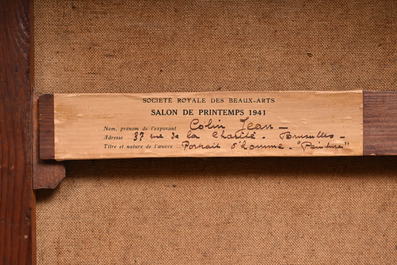 SOCIETE ROYALE DES BEAUX-ARTS
SALON DE PRINTEMPS 1941
Nom, prénom de l'exposant Colin Jean -
Adresse 37 rue de la Charité. Bruxelles -
Titre et nature de l'œuvre Portrait d'homme. "Peinture"